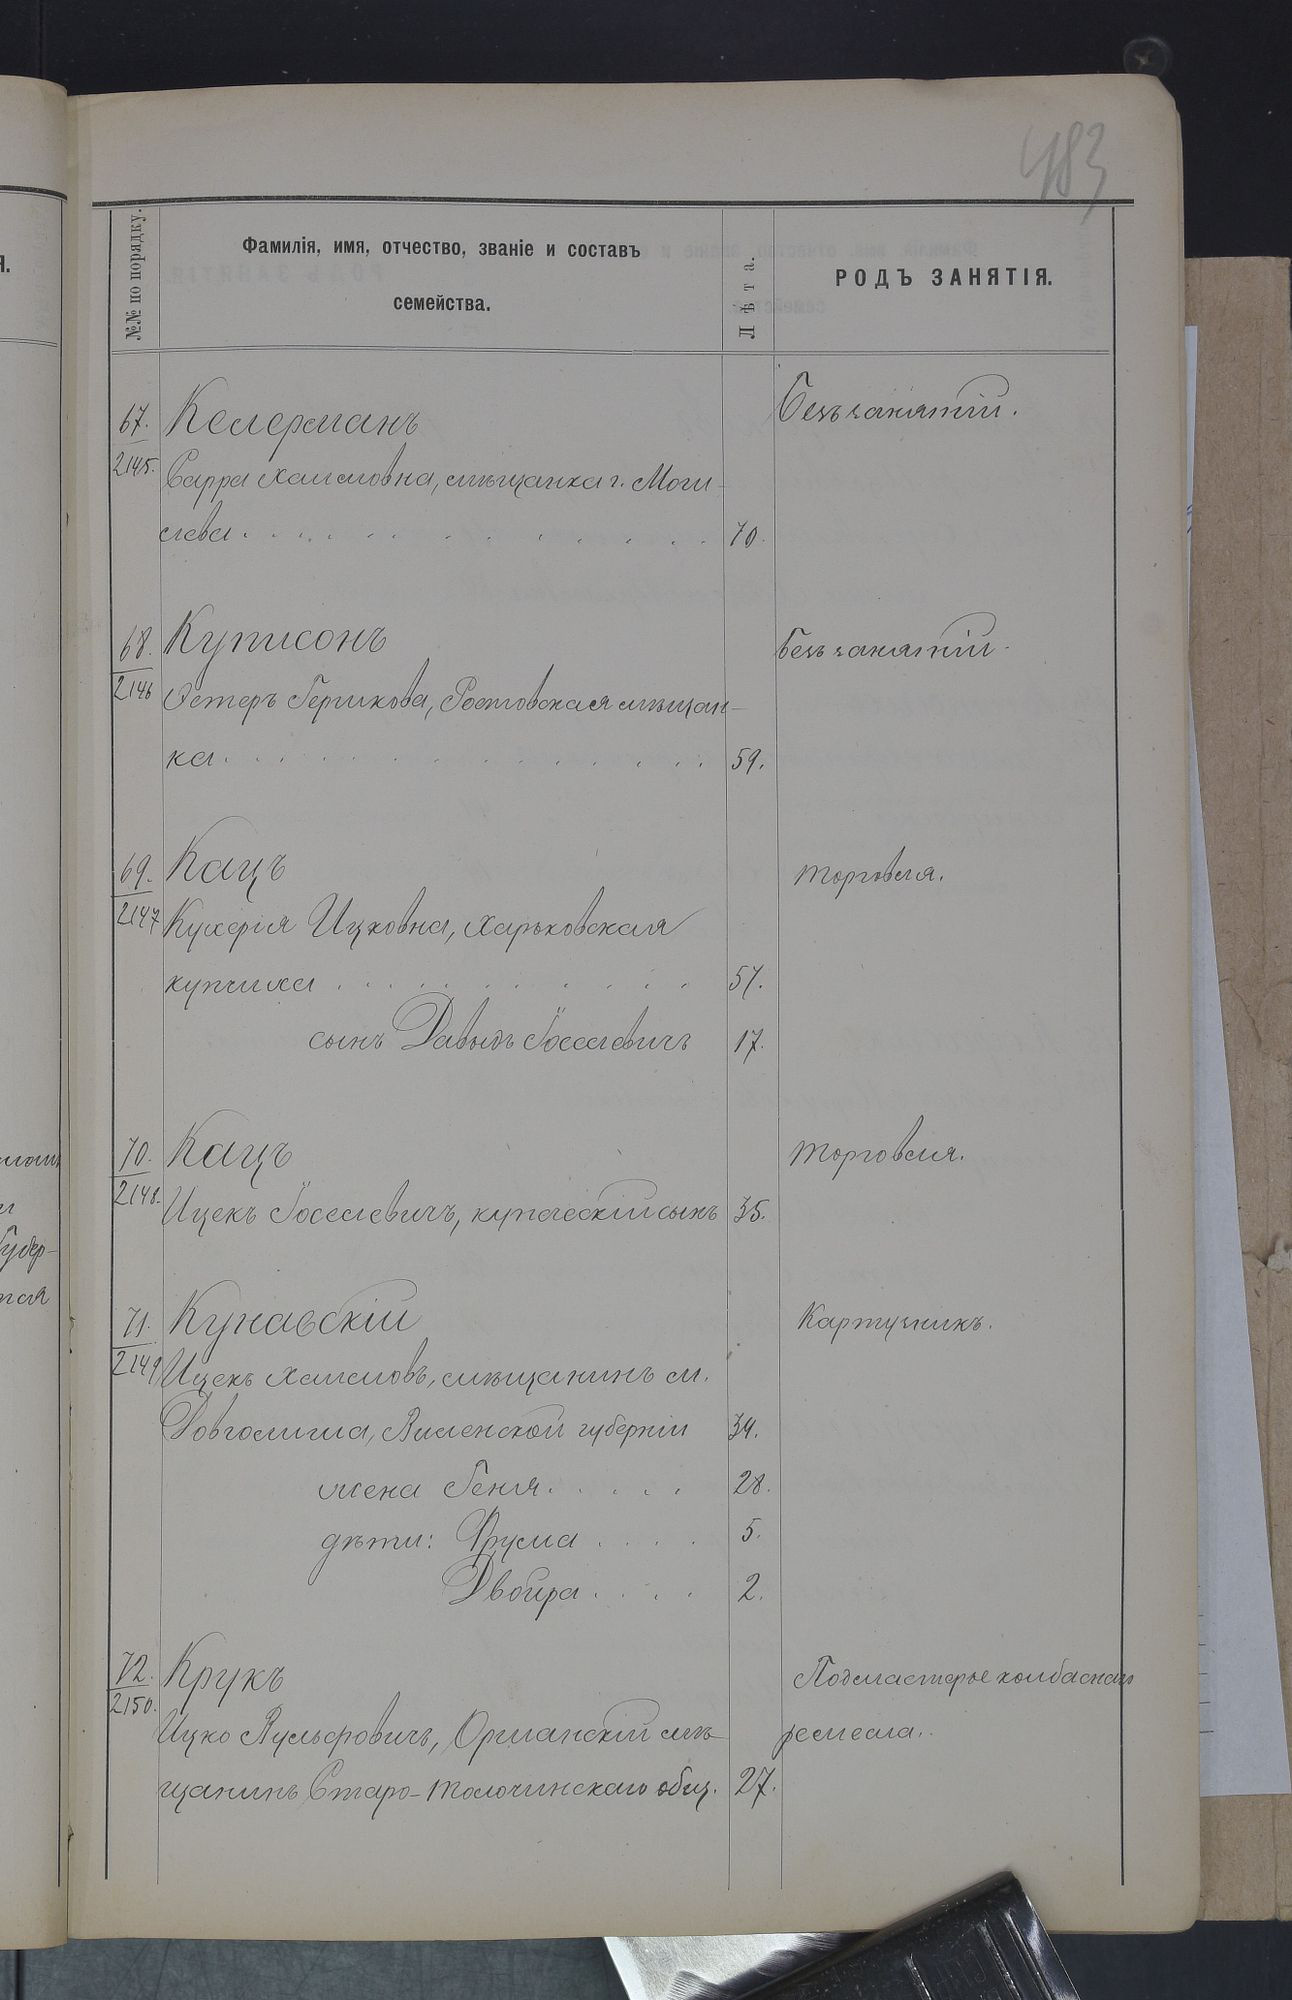 483
№№ по порядку.
Фамилія, имя, отчество, званіе и составъ
семейства.
Лѣта.
РОДЪ ЗАНЯТІЯ.
67.
2145.
Келерманъ
Безъ занятій.
Сарра Хаимовна, мѣщанка г. Моги-
лева 70.
68.
2146
Куписонъ
Безъ занятій.
Эстеръ Гершкова, Ростовская мѣщан-
ка 59.
69.
2147
Кацъ
Торговля.
Ицковна, Харьковская
купчиха 57.
сынъ Давыдъ Іоселевичъ 17.
70.
2148.
Кацъ
Торговля.
Ицекъ Іоселевичъ, купеческій сынъ 35.
71.
2149
Кунавскій
Картузникъ.
Ицекъ Хаимовъ, мѣщанинъ м.
Довголишша, Виленской губерніи 34.
жена Геня 28.
дѣти: Фрума 5.
Двойра 2.
72.
2150.
Крукъ
Подмастерье колбаснаго
ремесла.
Ицко Вульфовичъ, Оршанскій мѣ-
щанинъ Старо-Толочинскаго общ. 27.